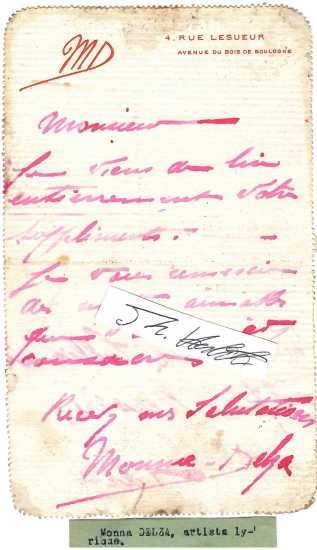 MD
4, RUE LESUEUR
AVENUE DU BOIS DE BOULOGNE
Monsieur
Je viens de lire
entièrement votre
supplément.
Je vous remercie
des aimables
que
consacrés
Recevez mes Salutations
Monna-Delza
Monna DELZA, artiste ly-
rique.